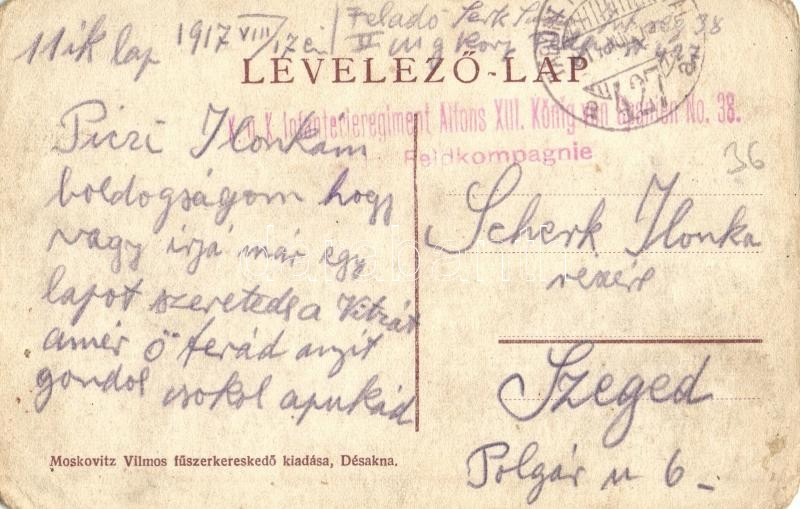 11ik lap 1917 VIII/17én
Feladó
LEVELEZŐ-LAP
427
K. u. K. Infanterieregiment Alfons XIII. König von Spanien No. 38.
Feldkompagnie
36
Piczi Ilonkám
boldogságom hogy
vagy irjá már egy
lapot szereted a
amér ő teråd anyit
gondol csokol apukád
Scherk Ilonka
részére
Szeged
Polgár u 6 –
Moskovitz Vilmos fűszerkereskedő kiadása, Désakna.